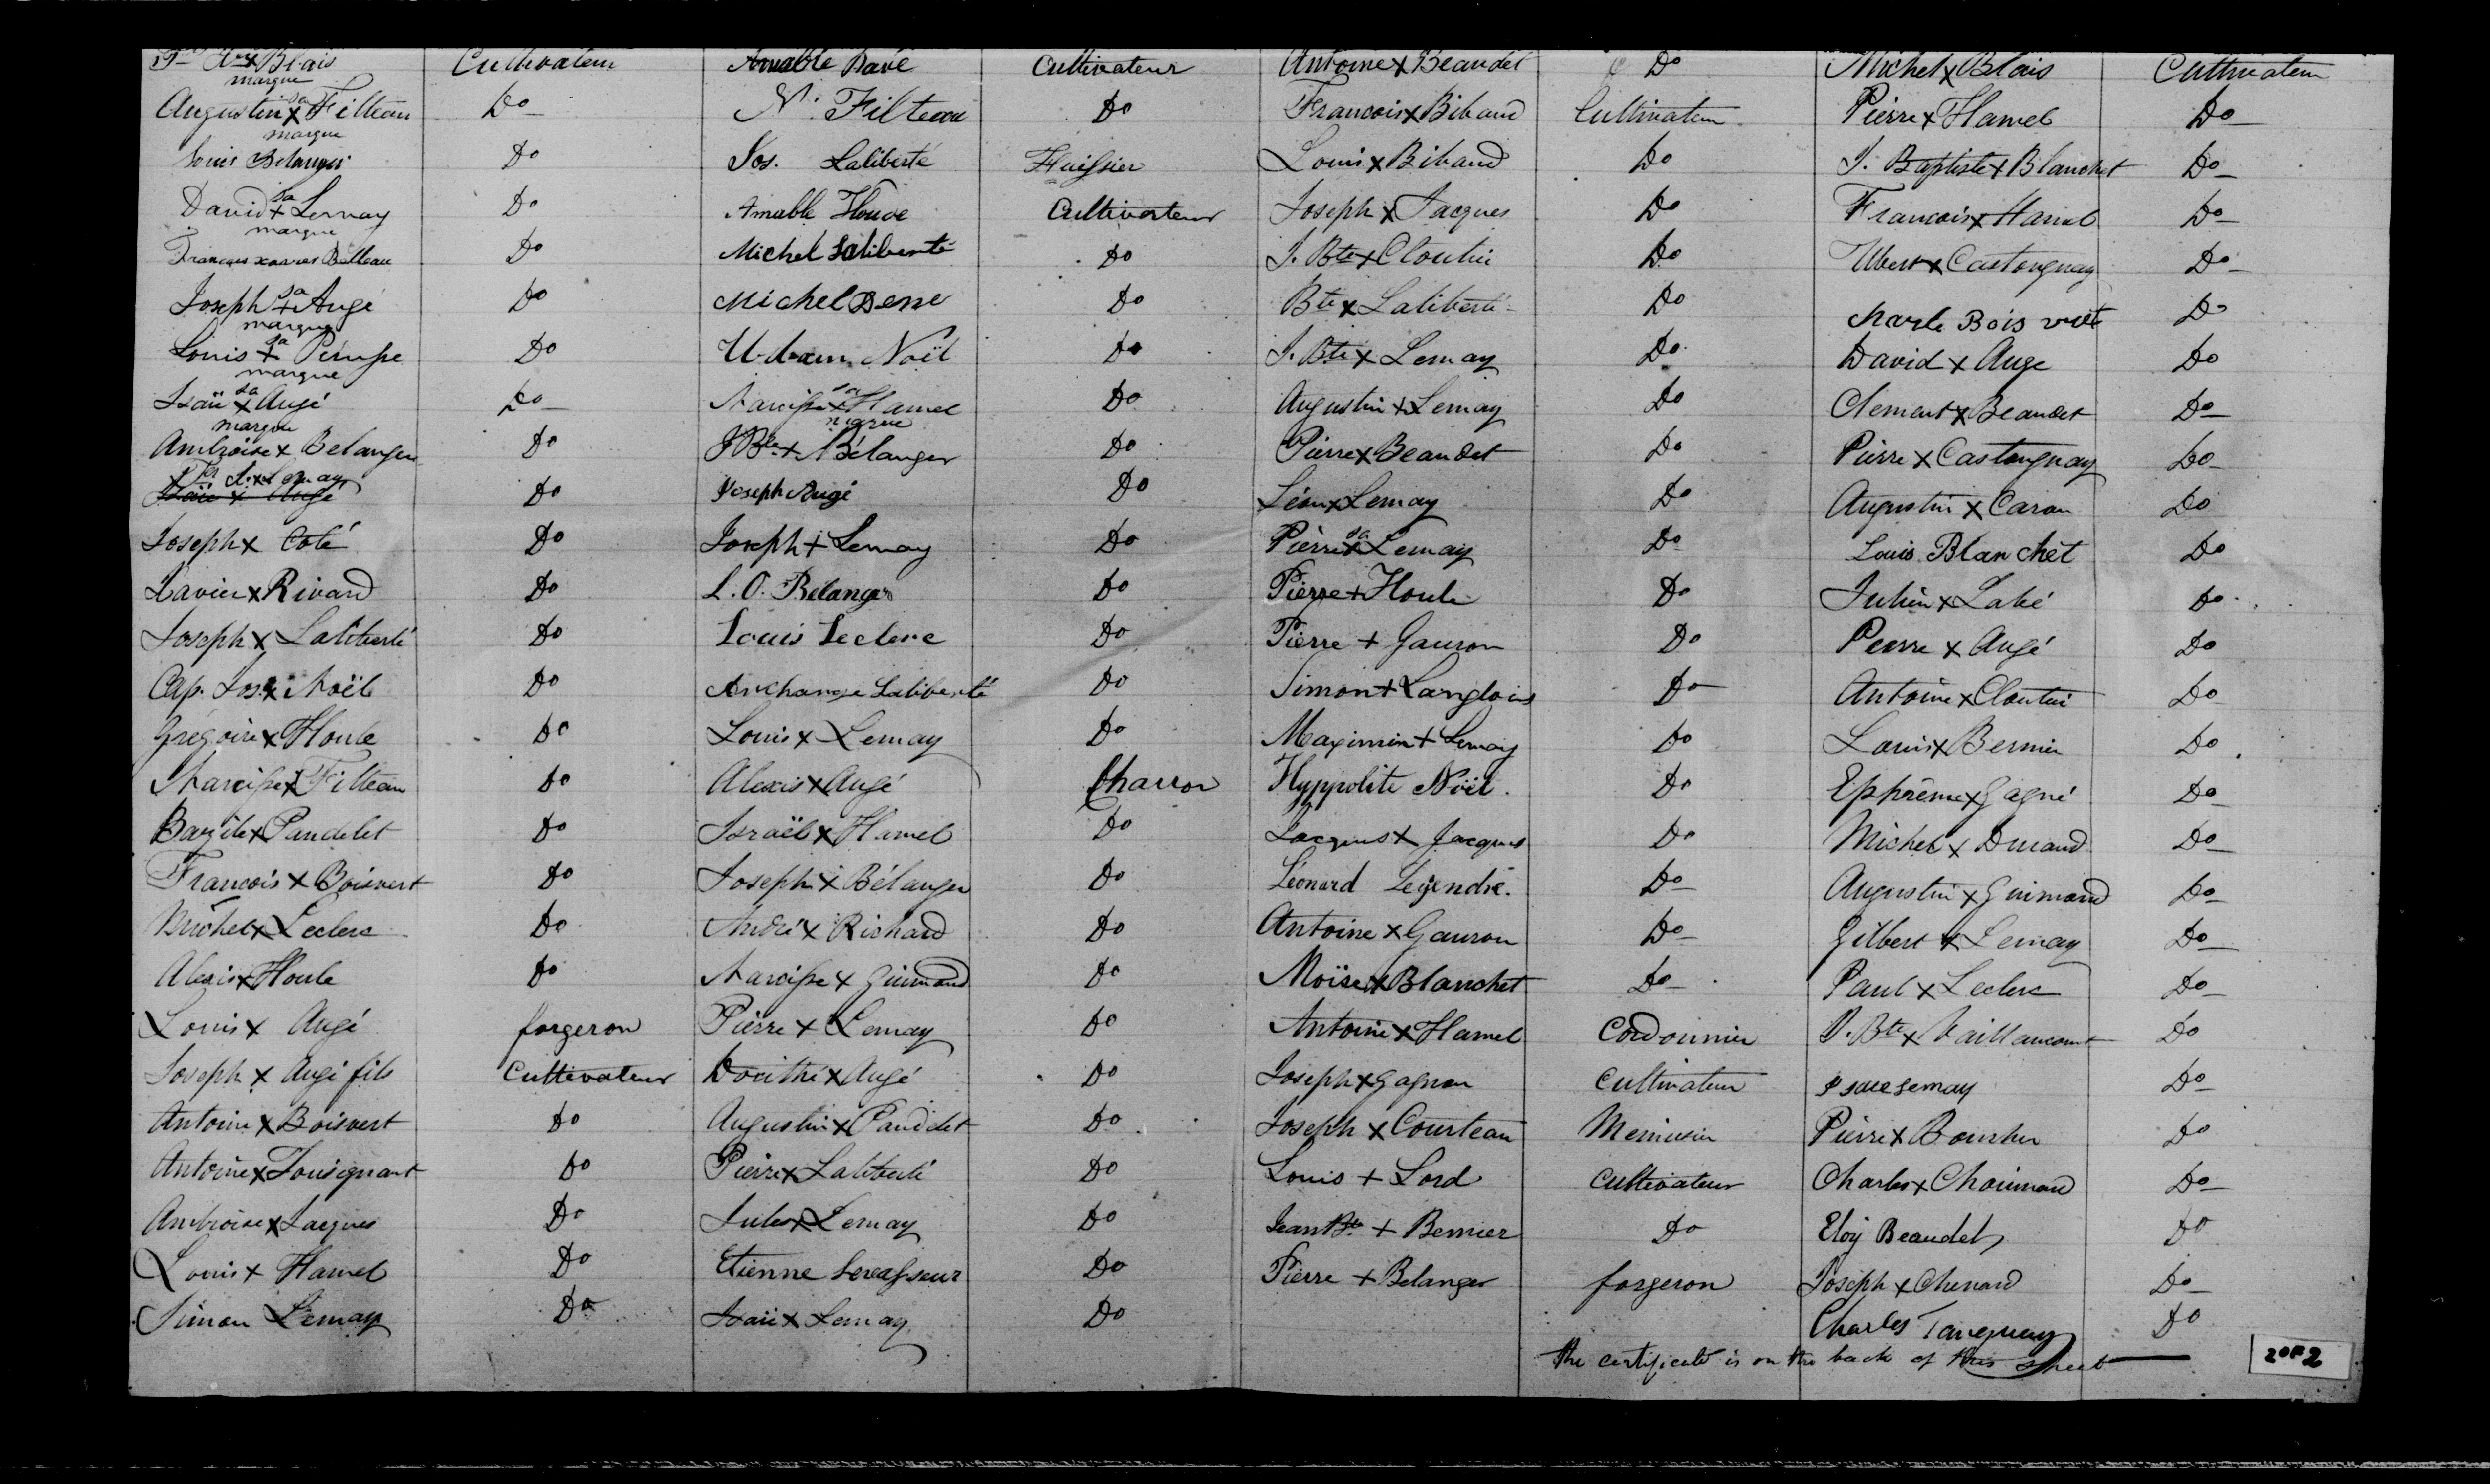 Blais Cultivateur Amable Cultivateur Antoine x Beaudet Do Michel x Blais Cultivateur
marque
Augustin sa x Filteau Do N. Filteau Do Francois x Bibaud Cultivateur Pierre x Hamel Do
marque
Louis Belanger Do Jos. Laliberté Huissier Louis x Bibaud Do J. Baptiste x Blanchet Do
David sa + Lemay Do Amable Houde Cultivateur Joseph x Jacques Do Francois x Hamel Do
marque
Do Michel Laliberté Do J. Bte x Cloutier Do x Castonguay Do
Joseph sa + Augé Do Michel Do Bte x Laliberté Do Charle Bois vert Do
marque
Louis sa + Do Urbain Noël Do J. Bte x Lemay Do David x Auge Do
marque
Isaïe sa x Augé Do Narcisse sa x Hamel Do Augustin + Lemay Do Clement x Beaudet Do
marque marque
Ambroise x Belanger Do J Bte + Bélanger Do Pierre x Beaudet Do Pierre x Castonguay Do
x Lemay
Isaïe x Augé Do Joseph Augé Do Léon x Lemay Do Augustin x Caron Do
Joseph x Coté Do Joseph + Lemay Do Pierre sa x Lemay Do Louis Blanchet Do
Xavier x Rivard Do L. O. Bélanger Do Pierre + Houle Do Julien x Do
Joseph x Laliberté Do Louis Leclerc Do Pierre + Gauron Do Pierre x Augé Do
Cap. Jos. x Noël Do Archange Laliberté Do Simon + Langlois Do Antoine x Cloutier Do
Grégoire x Houle Do Louis x Lemay Do Maximin + Lemay Do Louis x Bernier Do
Narcisse x Filteau Do Alexis x Augé Charron Hyppolite Noël. Do Ephrême x Gagné Do
Bazile x Paudelet Do Israël x Hamel Do Jacques x Jacques Do Michel x Durand Do
Francois x Boisvert Do Joseph x Bélanger Do Léonard Legendre. Do Augustin x Guimond Do
Michel x Leclerc Do André x Richard Do Antoine x Gauron Do Gilbert x Lemay Do
Alexis x Houle Do Narcisse x Guimond Do Moïse x Blanchet Do Paul x Leclerc Do
Louis x Augé forgeron Pierre x Lemay Do Antoine x Hamel Cordonnier J. Bte x Vaillancourt Do
Joseph x Augé fils Cultivateur Dosithé x Augé Do Joseph x Gagnon Cultivateur Isaie Lemay Do
Antoine x Boisvert Do Augustin x Paudelet Do Joseph x Courteau Menuisier Pierre x Boucher Do
Antoine x Tousignant Do Pierre x Laliberté Do Louis + Lord Cultivateur Charles x Chouinard Do
Ambroise x Jacques Do Jules x Lemay Do Jean Bte + Bernier Do Eloy Beaudet Do
Louis x Hamel Do Etienne Levasseur Do Pierre + Belanger forgeron Joseph x Chenard Do
Simon Lemay Do Isaïe x Lemay Do Charles Tanguay Do
the certificate is on the back of this sheet
2 OF 2